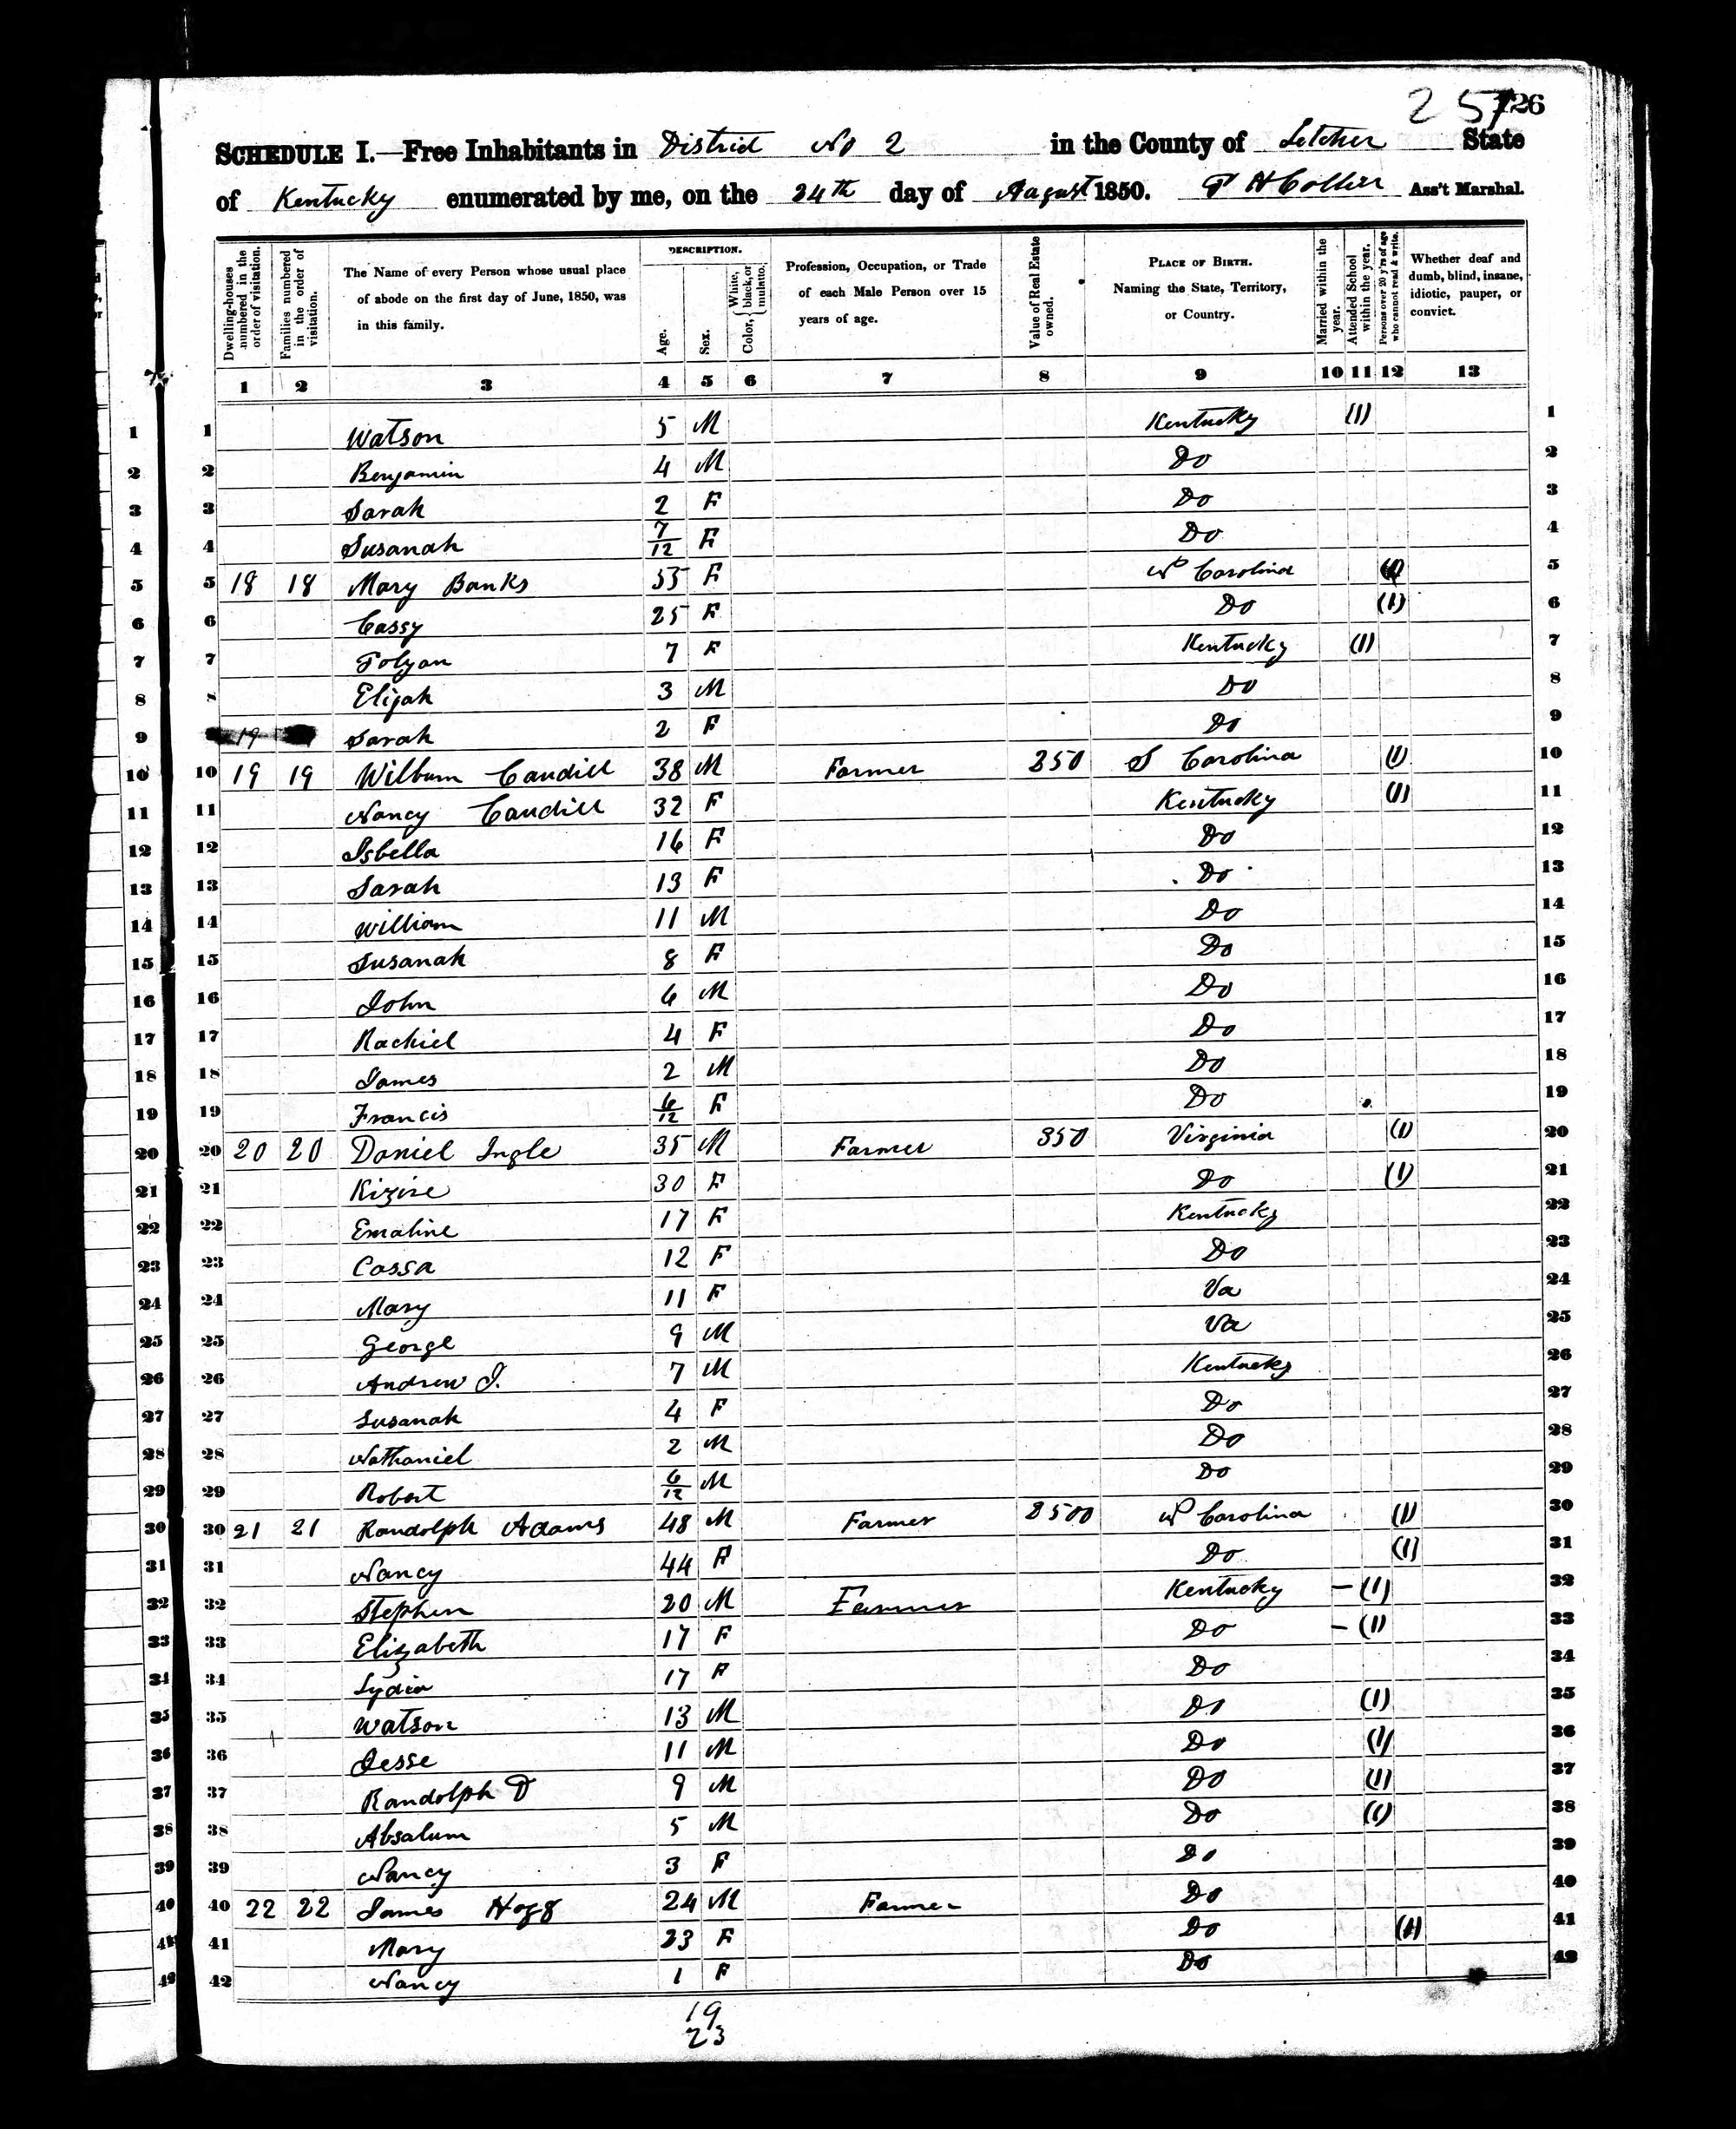 257 126
SCHEDULE I.—Free Inhabitants in District No 2 in the County of Letcher State
of Kentucky enumerated by me, on the 24th day of August 1850. T H Collier Ass't Marshal.
Dwelling-houses numbered in the order of visitation. Families numbered in the order of visitation. The Name of every Person whose usual place of abode on the first day of June, 1850, was in this family. DESCRIPTION. Age. Sex. Color, { White, black, or mulatto. Profession, Occupation, or Trade of each Male Person over 15 years of age. Value of Real Estate owned. PLACE OF BIRTH. Naming the State, Territory, or Country. Married within the year. Attended School within the year. Persons over 20 y'rs of age who cannot read & write. Whether deaf and dumb, blind, insane, idiotic, pauper, or convict.
1 2 3 4 5 6 7 8 9 10 11 12 13
1 1 Watson 5 M Kentucky (1) 1
2 2 Benjamin 4 M Do 2
3 3 Sarah 2 F Do 3
4 4 Susanah 7/12 F Do 4
5 5 18 18 Mary Banks 55 F N Carolina (1) 5
6 6 Cassy 25 F Do (1) 6
7 7 Polyan 7 F Kentucky (1) 7
8 8 Elijah 3 M Do 8
9 19 Sarah 2 F Do 9
10 10 19 19 Wilburn Caudill 38 M Farmer 250 S Carolina (1) 10
11 11 Nancy Caudill 32 F Kentucky (1) 11
12 12 Isbella 16 F Do 12
13 13 Sarah 13 F Do 13
14 14 William 11 M Do 14
15 15 Susanah 8 F Do 15
16 16 John 6 M Do 16
17 17 Rachiel 4 F Do 17
18 18 James 2 M Do 18
19 19 Francis 6/12 F Do 19
20 20 20 20 Daniel Ingle 35 M Farmer 350 Virginia (1) 20
21 21 Kizire 30 F Do (1) 21
22 22 Emaline 17 F Kentucky 22
23 23 Cassa 12 F Do 23
24 24 Mary 11 F Va 24
25 25 George 9 M Va 25
26 26 Andrew J. 7 M Kentucky 26
27 27 Susanah 4 F Do 27
28 28 Nathaniel 2 M Do 28
29 29 Robert 6/12 M Do 29
30 30 21 21 Randolph Adams 48 M Farmer 2500 N Carolina (1) 30
31 31 Nancy 44 F Do (1) 31
32 32 Stephen 20 M Farmer Kentucky – (1) 32
33 33 Elizabeth 17 F Do – (1) 33
34 34 Lydia 17 F Do 34
35 35 Watson 13 M Do (1) 35
36 36 Jesse 11 M Do (1) 36
37 37 Randolph D 9 M Do (1) 37
38 38 Absalum 5 M Do (1) 38
39 39 Nancy 3 F Do 39
40 40 22 22 James Hogg 24 M Farmer Do 40
41 41 Mary 23 F Do (1) 41
42 42 Nancy 1 F Do 42
19
23